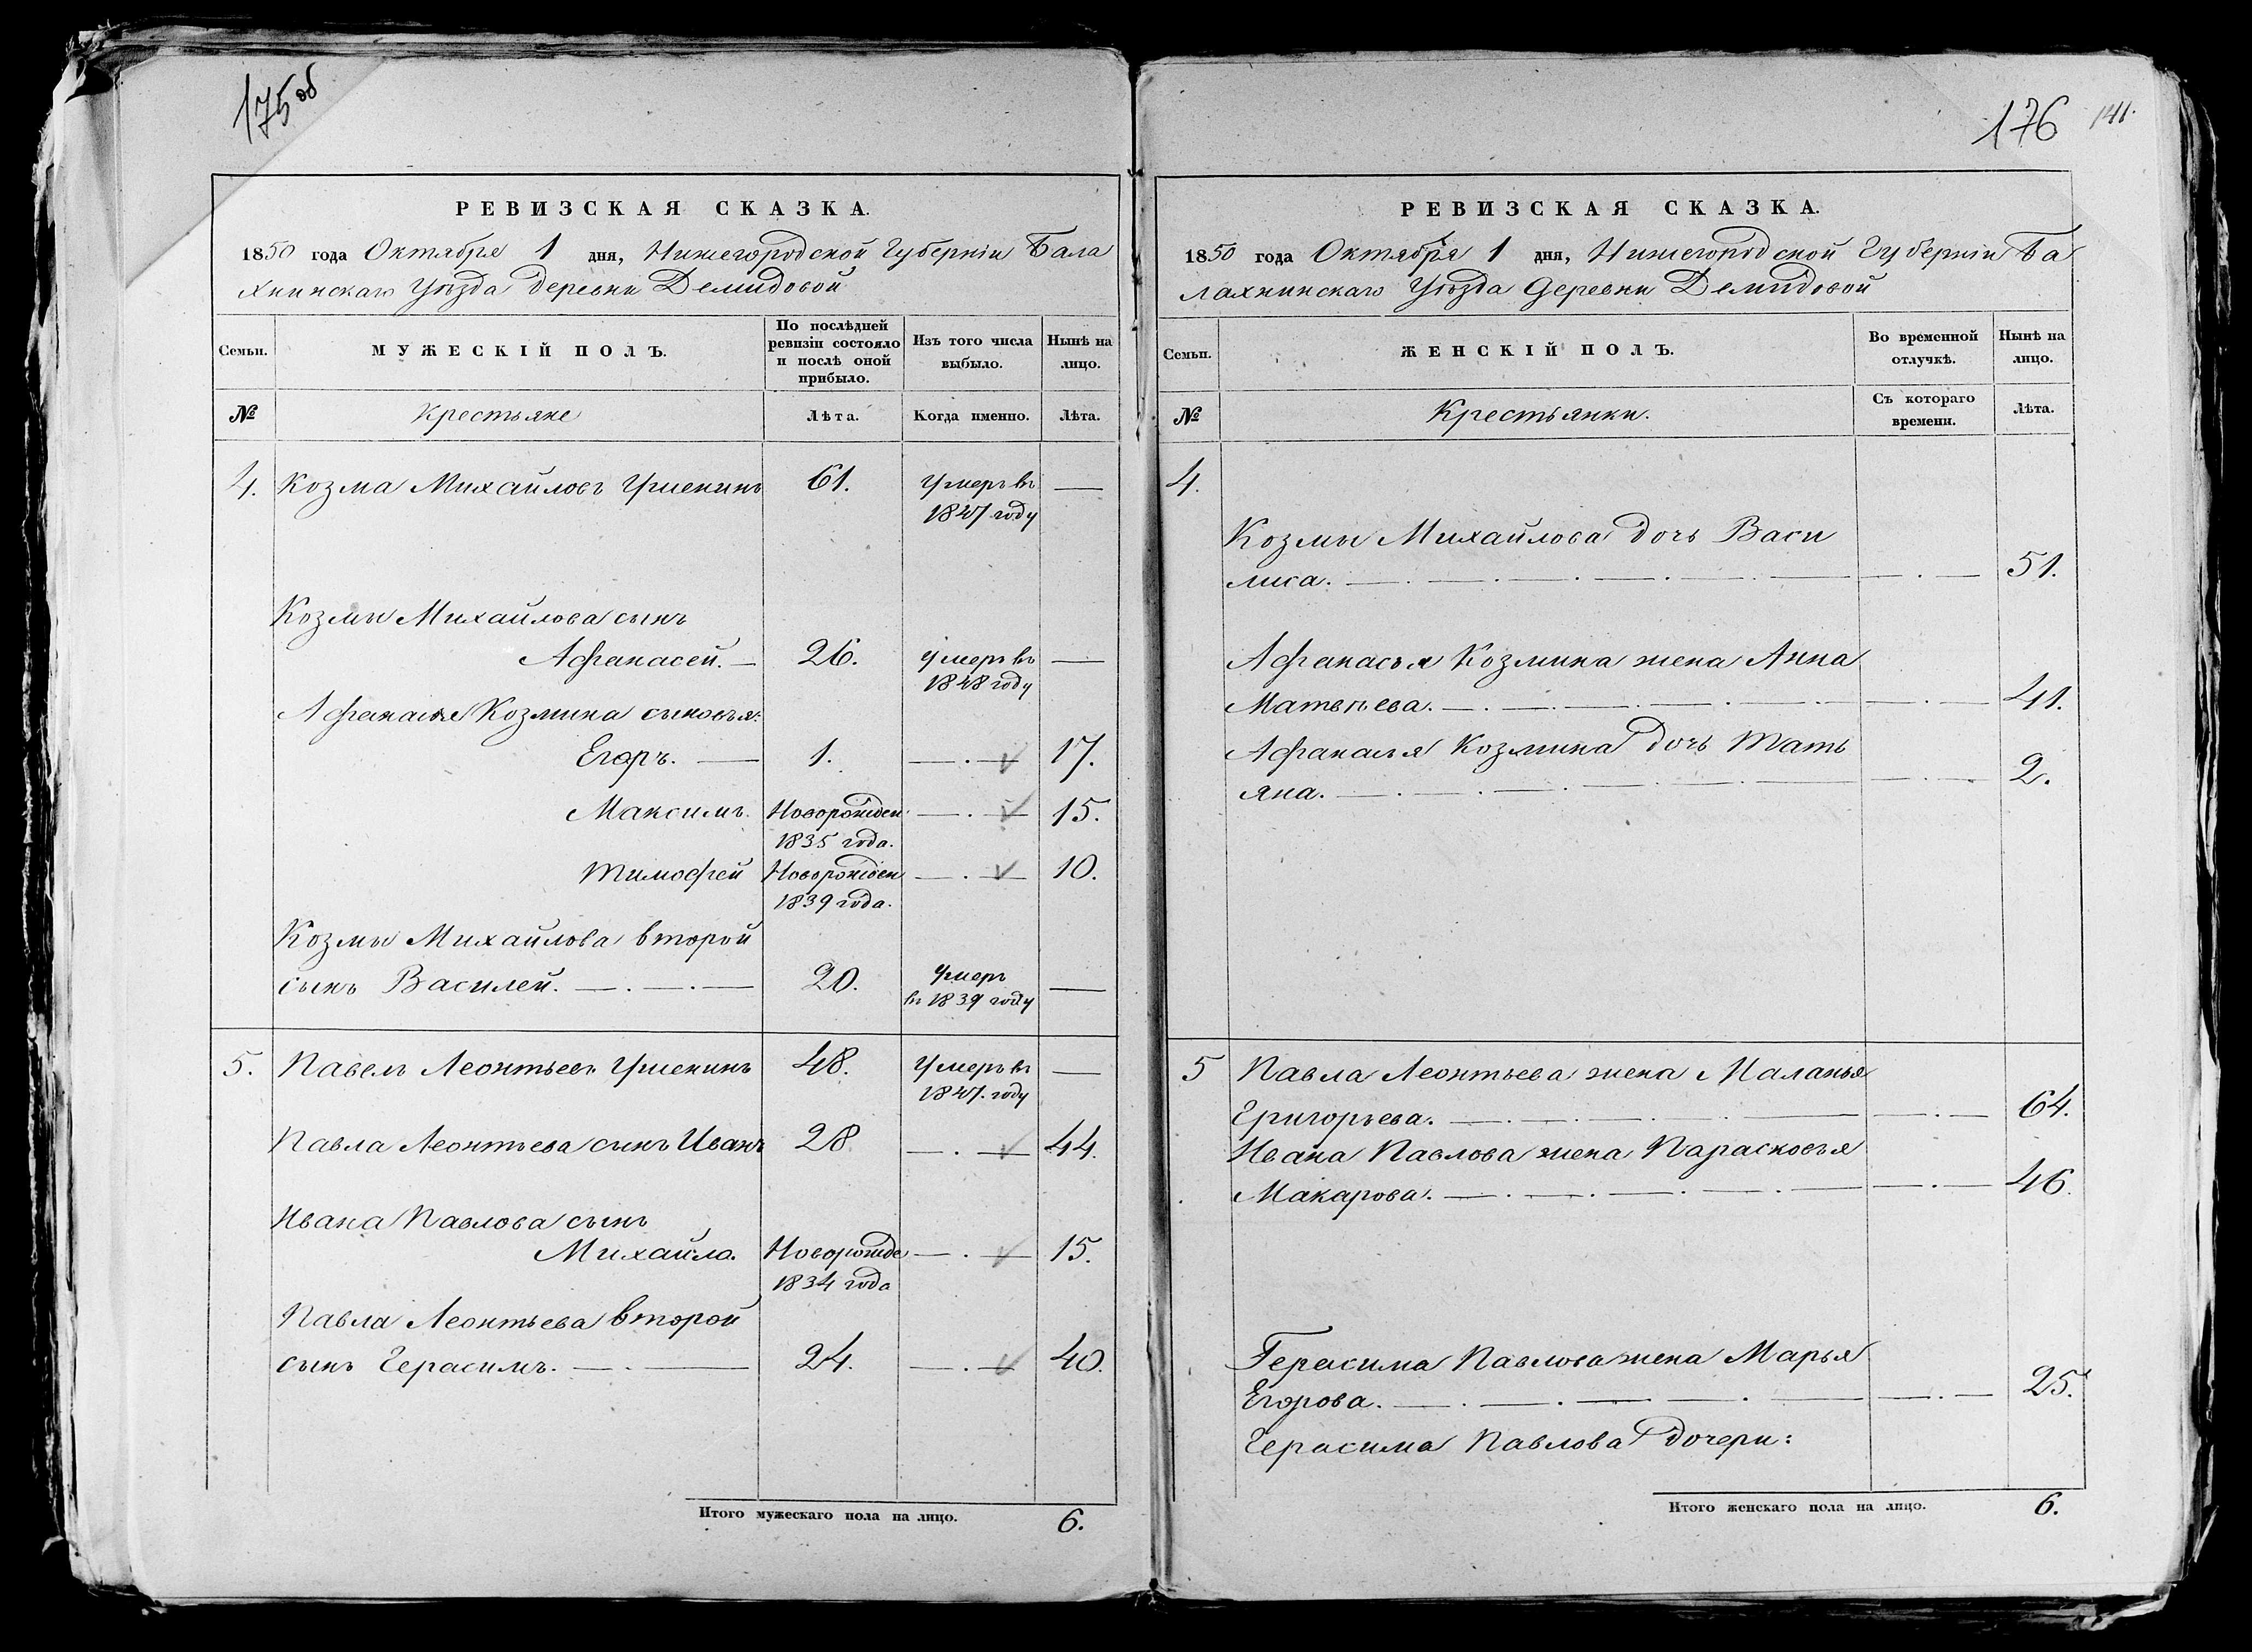 175об
РЕВИЗСКАЯ СКАЗКА.
1850 года Октября 1 дня, Нижегородской Губерніи Бала
хнинскаго Уѣзда деревни Демидовой
Семьи.
МУЖЕСКІЙ ПОЛЪ.
По послѣдней
ревизіи состояло
и послѣ оной
прибыло.
Изъ того числа
выбыло.
Нынѣ на
лицо.
№
Крестьяне
Лѣта.
Когда именно.
Лѣта.
4. Козма Михайловъ 61. Умеръ въ —
1847 году
Козмы Михайлова сынъ
Афанасей. — 26. умеръ въ —
1848 году
Афанасья Козмина сыновья:
Егоръ. — 1. — . — 17.
Максимъ. Новорожден — . — 15.
1835 года.
Тимофей Новорожден — . — 10.
1839 года.
Козмы Михайлова второй
сынъ Василей. — . — . — 20. Умеръ —
въ 1839 году
5. Павелъ Леонтьевъ 48. Умеръ въ —
1847. году
Павла Леонтьева сынъ Иванъ 28 — . — 44.
Ивана Павлова сынъ
Михайло. Новорожде — . — 15.
1834 года
Павла Леонтьева второй
сынъ Герасимъ. — . — 24. — . — 40.
Итого мужескаго пола на лицо. 6.
176 141.
РЕВИЗСКАЯ СКАЗКА.
1850 года Октября 1 дня, Нижегородской Губерніи Ба
лахнинскаго Уѣзда деревни Демидовой
Семьи.
ЖЕНСКІЙ ПОЛЪ.
Во временной
отлучкѣ.
Нынѣ на
лицо.
№
Крестьянки.
Съ котораго
времени.
Лѣта.
4.
Козмы Михайлова дочь Васи
лиса. — . — . — . — . — — . — 51.
Афанасья Козмина жена Анна
Матвѣева. — . — . — . — . — — . — 41.
Афанасья Козмина дочь Тать
яна. — . — . — . — . — — . — 2.
5 Павла Леонтьева жена Маланья
Григорьева. — . — . — . — — . — 64.
Ивана Павлова жена Парасковья
Макарова. — . — . — . — . — — . — 46.
Герасима Павлова жена Марья
Егорова. — . — . — . — . — — . — 25.
Герасима Павлова дочери:
Итого женскаго пола на лицо. 6.